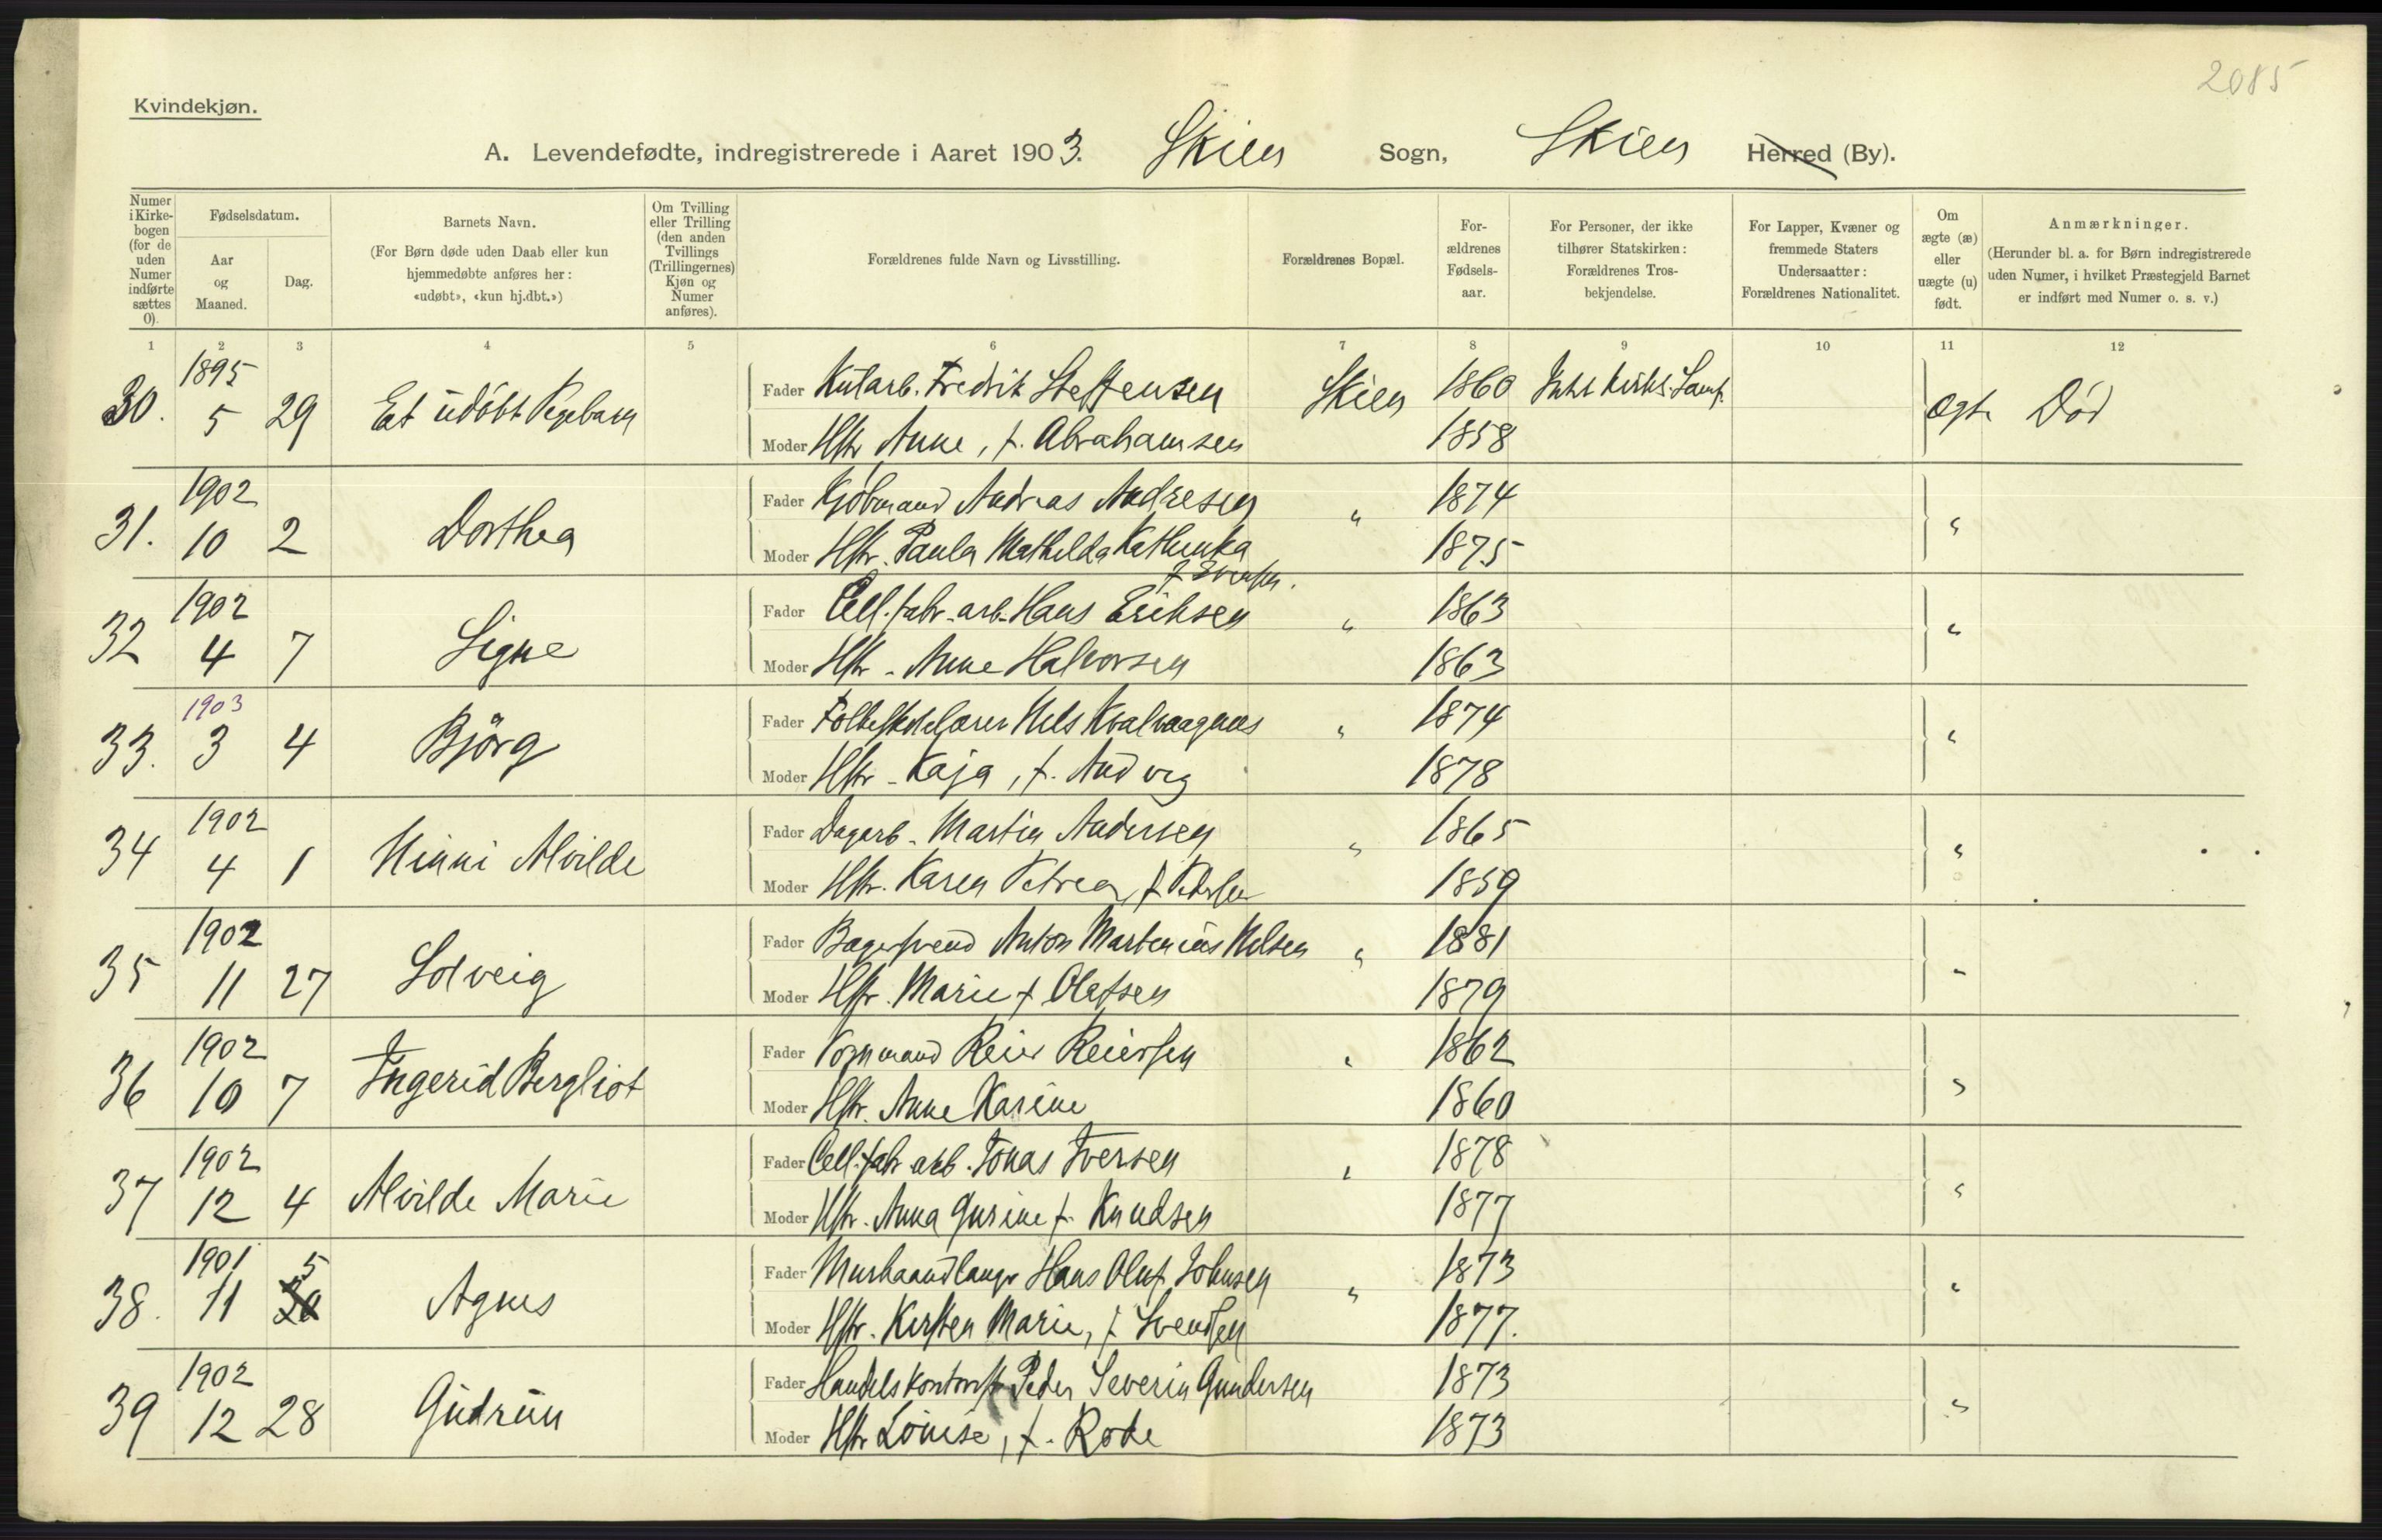 2085
Kvindekjøn.
A. Levendefødte, indregistrerede i Aaret 1903. Skien Sogn, Skien Herred (By).
Numer i Kirkebogen (for de uden Numer indførte sættes 0).
Fødselsdatum.
Aar og Maaned.
Dag.
Barnets Navn.
(For Børn døde uden Daab eller kun hjemmedøbte anføres her: «udøbt», «kun hj.dbt.»)
Om Tvilling eller Trilling (den anden Tvillings (Trillingernes) Kjøn og Numer anføres).
Forældrenes fulde Navn og Livsstilling.
Forældrenes Bopæl.
Forældrenes Fødselsaar.
For Personer, der ikke tilhører Statskirken: Forældrenes Trosbekjendelse.
For Lapper, Kvæner og fremmede Staters Undersaatter: Forældrenes Nationalitet.
Om ægte (æ) eller uægte (u) født.
Anmærkninger.
(Herunder bl. a. for Børn indregistrerede uden Numer, i hvilket Præstegjeld Barnet er indført med Numer o. s. v.)
1 2 3 4 5 6 7 8 9 10 11 12
30. 1895 5 29 Et udøbt Pigebarn
Fader Kularb. Fredrik Steffensen Skien 1860 Ægte Død
Moder Hstr Anne, f. Abrahamsen 1858
31. 1902 10 2 Dorthea
Fader Kjøbmand Andreas Andresen " 1874 "
Moder Hstr. Paula Mathilda Kathinka f. Evensen. 1875
32 1902 4 7 Signe
Fader Cell. fabr. arb. Hans Eriksen " 1863 "
Moder Hstr - Anne Halvorsen 1863
33. 1903 3 4 Bjørg
Fader Folkeskolelærer Nils Kvalvaagnæs " 1874 "
Moder Hstr - Kaja, f. Andvig 1878
34 1902 4 1 Minni Alvilde
Fader Dagarb. Martin Andersen " 1865 "
Moder Hstr. Karen Petrea, f Pedersen 1859
35 1902 11 27 Solveig
Fader Bagersvend Anton Martenius Nilsen " 1881 "
Moder Hstr. Marie f Olafsen 1879
36 1902 10 7 Ingerid Bergliot
Fader Vognmand Reier Reiersen " 1862 "
Moder Hstr. Anne Karine 1860
37 1902 12 4 Alvilde Marie
Fader Cell. fabr arb. Jonas Iversen " 1878 "
Moder Hstr. Anna Gurine f. Knudsen 1877
38. 1901 11 5 30 Agnes
Fader Murhaandlanger Hans Oluf Johnsen " 1873 "
Moder Hstr. Kirsten Marie, f Svendsen 1877.
39 1902 12 28 Gudrun
Fader Handelskontorist Peder Severin Gundersen 1873 "
Moder Hstr Louise, f. Rode 1873